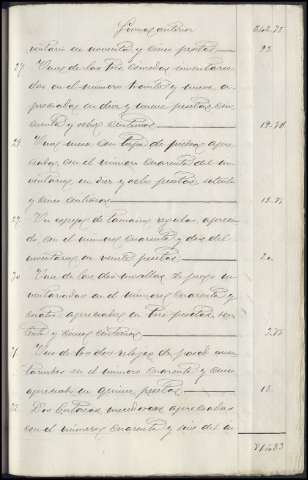 Suma anterior 642.71
ventario en noventa y cinco pesetas 95.
27 Una de las tres cómodas inventariadas
en el número treinta y nueve a
preciadas en diez y nueve pesetas
y ocho céntimos
28 Una mesa con tapa de piedra apre
ciada con el número cuarenta del in
ventario, en diez y ocho pesetas setenta
y cinco céntimos 18.75
29 Un espejo de tamaño regular aprecia
do con el número cuarenta y dos del
inventario en veinte pesetas 20.
30 Una de las dos mesillas de juego in
ventariadas en el número cuarenta y
cuatro apreciadas en dos pesetas, se
tenta y cinco céntimos 2.75
31 Uno de los dos relojes de pared inven
tariados en el número cuarenta y cinco
apreciado en quince pesetas 15.
32 Dos butacas mecedoras apreciadas
con el número cuarenta y seis del in